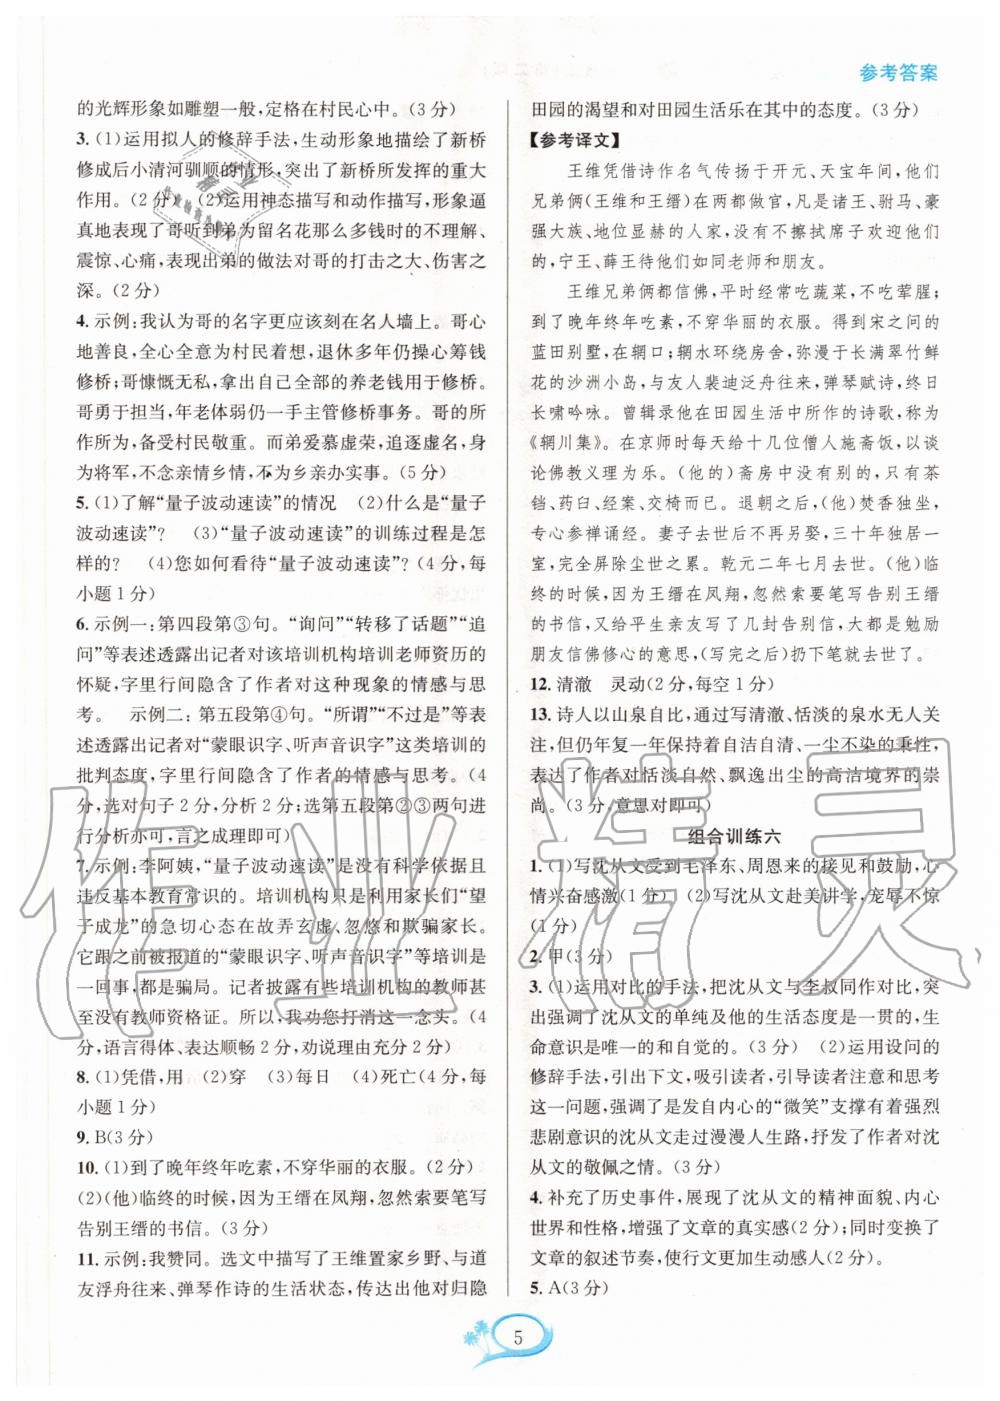 参考答案
的光辉形象如雕塑一般,定格在村民心中。(3分)
3. (1)运用拟人的修辞手法,生动形象地描绘了新桥
修成后小清河驯顺的情形,突出了新桥所发挥的重大
作用。(2分) (2)运用神态描写和动作描写,形象逼
真地表现了哥听到弟为留名花那么多钱时的不理解、
震惊、心痛,表现出弟的做法对哥的打击之大、伤害之
深。(2分)
4. 示例:我认为哥的名字更应该刻在名人墙上。哥心
地善良,全心全意为村民着想,退休多年仍操心筹钱
修桥;哥慷慨无私,拿出自己全部的养老钱用于修桥。
哥勇于担当,年老体弱仍一手主管修桥事务。哥的所
作所为,备受村民敬重。而弟爱慕虚荣,追逐虚名,身
为将军,不念亲情乡情,不为乡亲办实事。(5分)
5. (1)了解“量子波动速读”的情况 (2)什么是“量子
波动速读”? (3)“量子波动速读”的训练过程是怎
样的? (4)您如何看待“量子波动速读”?(4分,每
小题1分)
6. 示例一:第四段第③句。“询问”“转移了话题”“追
问”等表述透露出记者对该培训机构培训老师资历的
怀疑,字里行间隐含了作者对这种现象的情感与思
考。 示例二:第五段第④句。“所谓”“不过是”等表
述透露出记者对“蒙眼识字、听声音识字”这类培训的
批判态度,字里行间隐含了作者的情感与思考。(4
分,选对句子2分,分析2分;选第五段第②③两句进
行分析亦可,言之成理即可)
7. 示例:李阿姨,“量子波动速读”是没有科学依据且
违反基本教育常识的。培训机构只是利用家长们“望
子成龙”的急切心态在故弄玄虚、忽悠和欺骗家长。
它跟之前被报道的“蒙眼识字、听声音识字”等培训是
一回事,都是骗局。记者披露有些培训机构的教师甚
至没有教师资格证。所以,我劝您打消这一念头。(4
分,语言得体、表达顺畅2分,劝说理由充分2分)
8. (1)凭借,用 (2)穿 (3)每日 (4)死亡(4分,每
小题1分)
9. B(3分)
10. (1)到了晚年终年吃素,不穿华丽的衣服。(2分)
(2)(他)临终的时候,因为王缙在凤翔,忽然索要笔写
告别王缙的书信。(3分)
11. 示例:我赞同。选文中描写了王维置家乡野、与道
友浮舟往来、弹琴作诗的生活状态,传达出他对归隐
田园的渴望和对田园生活乐在其中的态度。(3分)
【参考译文】
王维凭借诗作名气传扬于开元、天宝年间,他们
兄弟俩(王维和王缙)在两都做官,凡是诸王、驸马、豪
强大族、地位显赫的人家,没有不擦拭席子欢迎他们
的,宁王、薛王待他们如同老师和朋友。
王维兄弟俩都信佛,平时经常吃蔬菜,不吃荤腥;
到了晚年终年吃素,不穿华丽的衣服。得到宋之问的
蓝田别墅,在辋口;辋水环绕房舍,弥漫于长满翠竹鲜
花的沙洲小岛,与友人裴迪泛舟往来,弹琴赋诗,终日
长啸吟咏。曾辑录他在田园生活中所作的诗歌,称为
《辋川集》。在京师时每天给十几位僧人施斋饭,以谈
论佛教义理为乐。(他的)斋房中没有别的,只有茶
铛、药臼、经案、交椅而已。退朝之后,(他)焚香独坐,
专心参禅诵经。妻子去世后不再另娶,三十年独居一
室,完全屏除尘世之累。乾元二年七月去世。(他)临
终的时候,因为王缙在凤翔,忽然索要笔写告别王缙
的书信,又给平生亲友写了几封告别信,大都是勉励
朋友信佛修心的意思,(写完之后)扔下笔就去世了。
12. 清澈 灵动(2分,每空1分)
13. 诗人以山泉自比,通过写清澈、恬淡的泉水无人关
注,但仍年复一年保持着自洁自清、一尘不染的秉性,
表达了作者对恬淡自然、飘逸出尘的高洁境界的崇
尚。(3分,意思对即可)
组合训练六
1. (1)写沈从文受到毛泽东、周恩来的接见和鼓励,心
情兴奋感激(1分) (2)写沈从文赴美讲学,宠辱不惊
(1分)
2. 甲(3分)
3. (1)运用对比的手法,把沈从文与李叔同作对比,突
出强调了沈从文的单纯及他的生活态度是一贯的,生
命意识是唯一的和自我的。(3分) (2)运用设问的
修辞手法,引出下文,吸引读者,引导读者注意和思考
这一问题,强调了是发自内心的“微笑”支撑有着强烈
悲剧意识的沈从文走过漫漫人生路,抒发了作者对沈
从文的敬佩之情。(3分)
4. 补充了历史事件,展现了沈从文的精神面貌、内心
世界和性格,增强了文章的真实感(2分);同时变换了
文章的叙述节奏,使行文更加生动感人(2分)
5. A(3分)
5
作业精灵